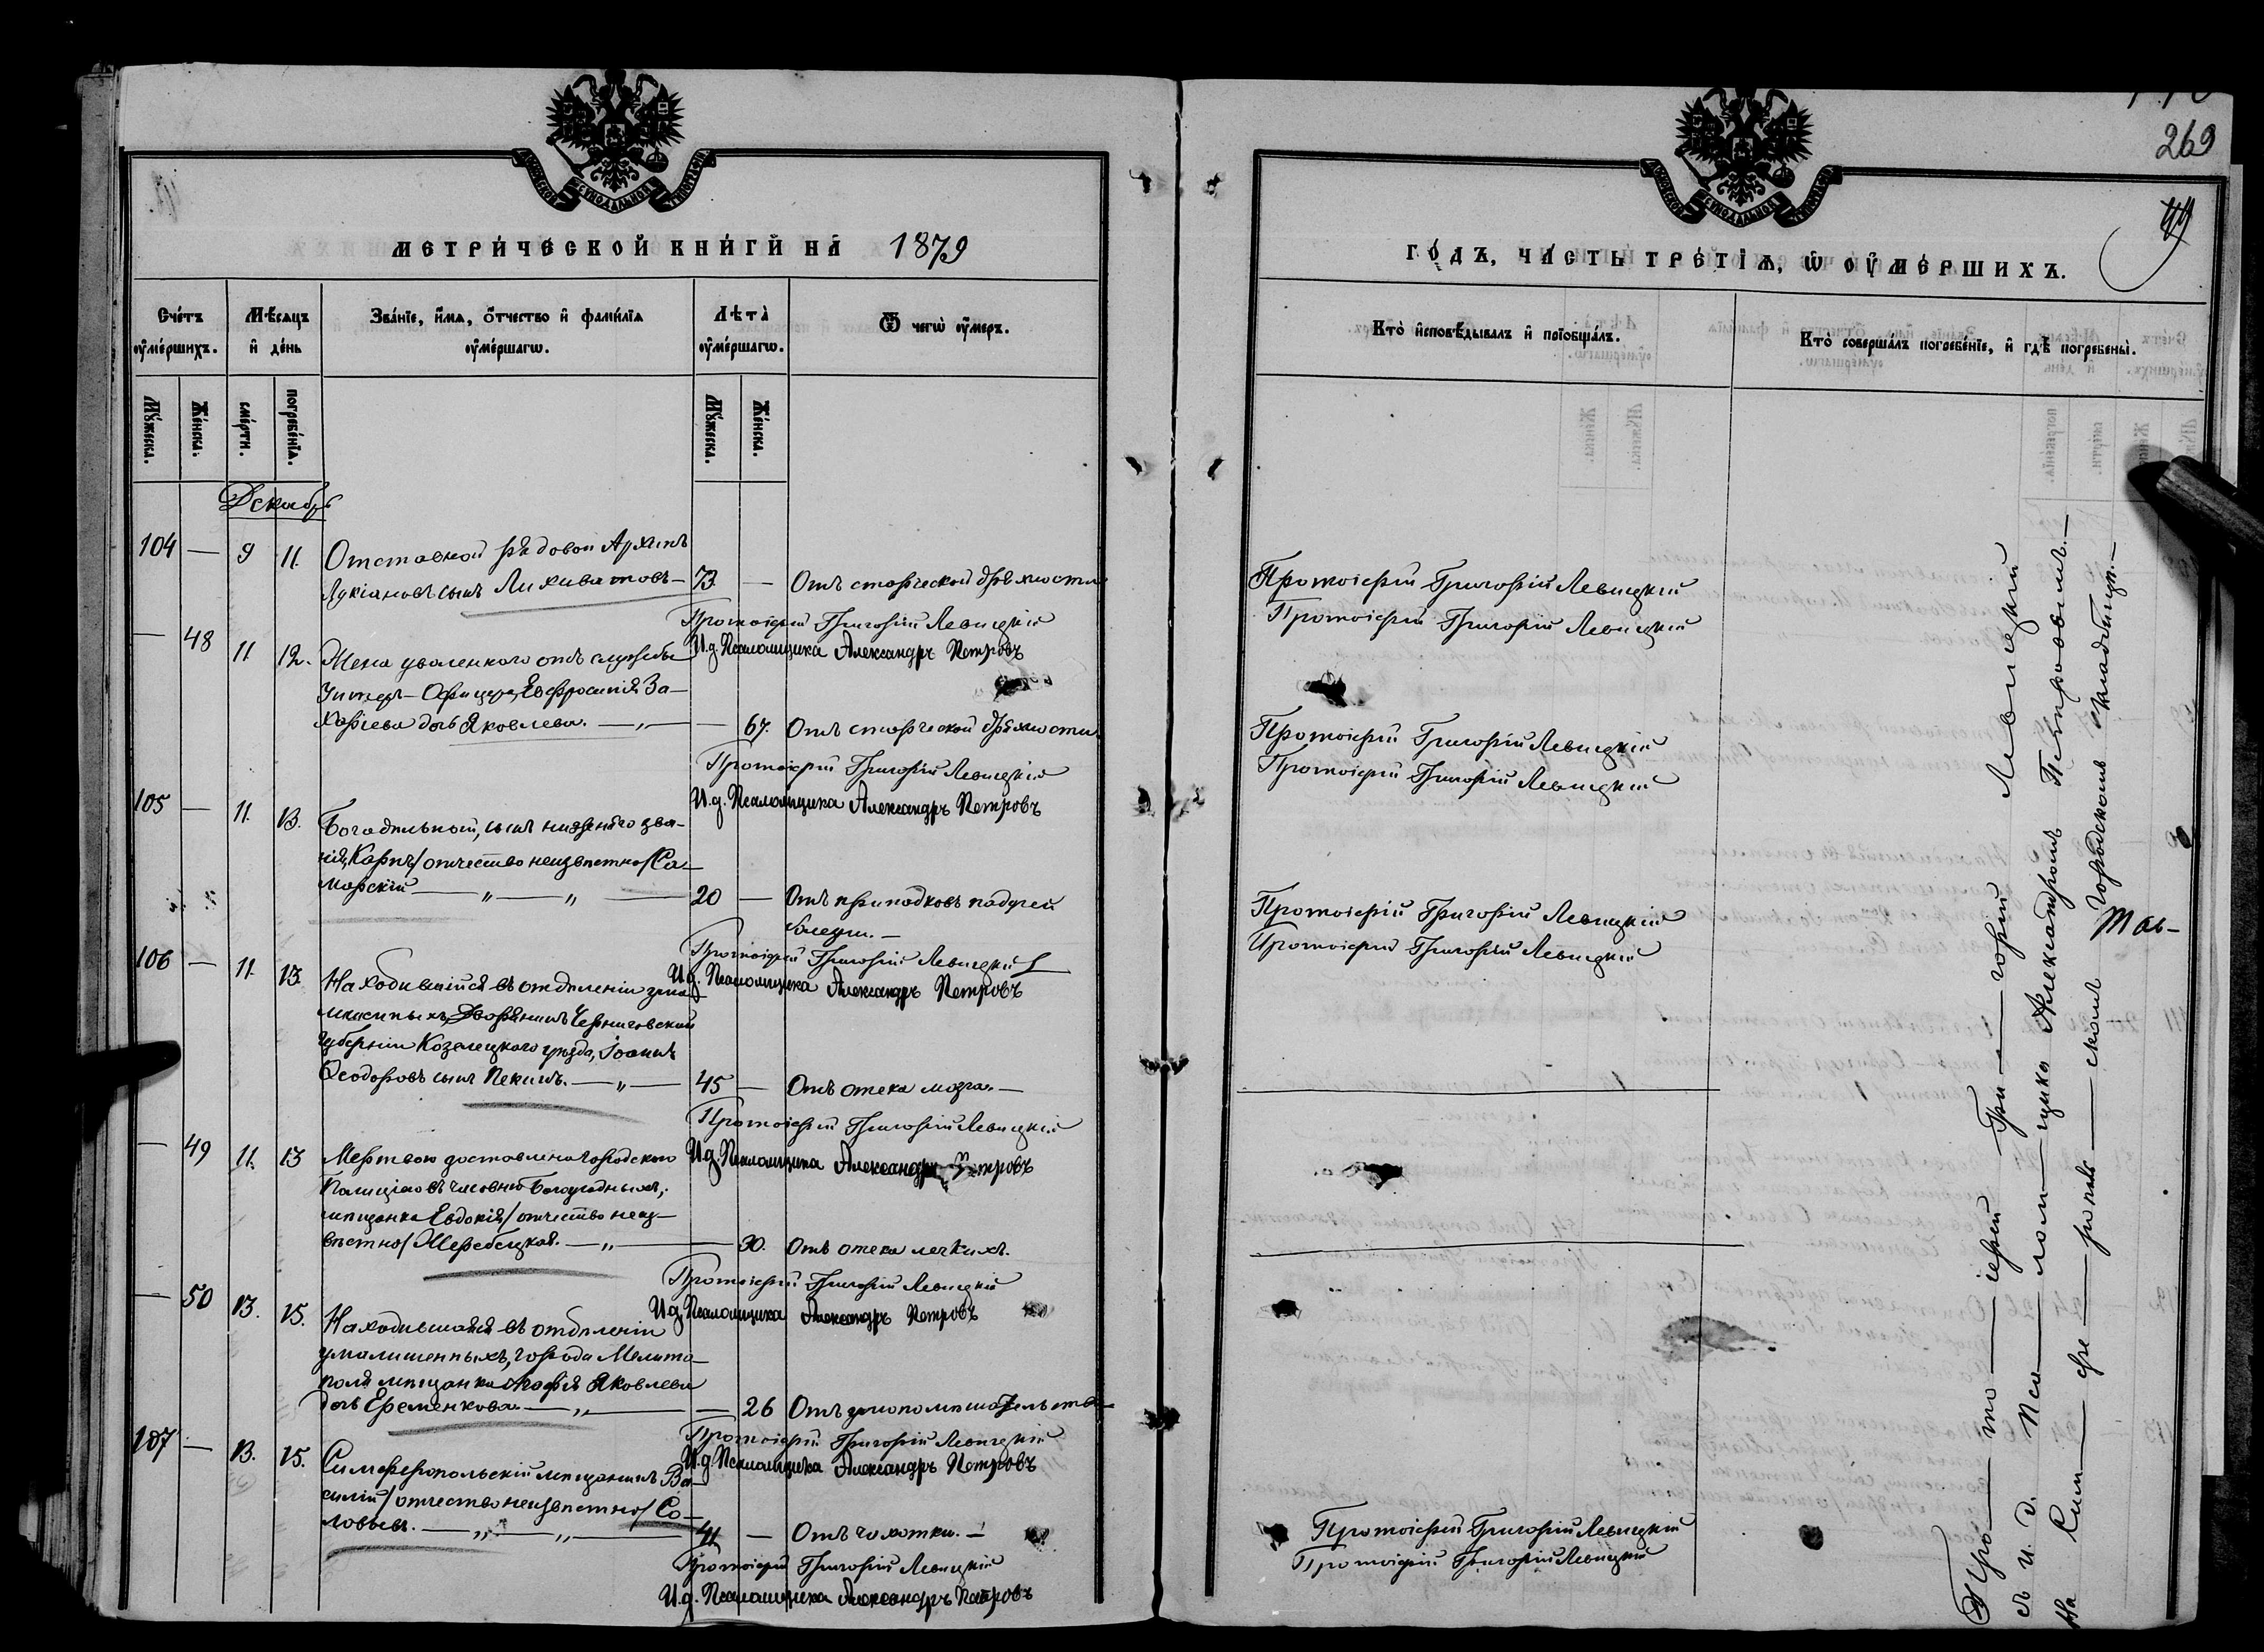 269
МЕТРИ́ЧЕСКОЙ КНИ́ГИ НА̀ 1879
ГО́ДЪ, ЧА́СТЬ ТРЕ́ТІѦ, Ѡ ОУ҆МЕ́РШИХЪ.
Сче́тъ оу҆ме́ршихъ.
Мѣ́сяцъ и҆ де́нь
Зва́нїе, и҆́мѧ, ѻ҆́тчество и҆ фами́лїѧ оу҆ме́ршагѡ.
Лѣ́та оу҆ме́ршагѡ.
Ѿ чегѡ̀ оу҆́меръ.
Кто̀ и҆сповѣ́дывалъ и҆ прїобща́лъ.
Кто̀ соверша́лъ погребе́нїе, и҆ гдѣ̀ погребены̀.
Мꙋ́жеска. Же́нска. сме́рти. погребе́нїѧ. Мꙋ́жеска. Же́нска.
Декабрь
104 — 9 11. Отставной рядовой Архипъ
Лукіановъ сынъ Лихиватовъ — 73. — Отъ старческой дряхлости
Протоіерей Григорій Левицкій
Протоіерей Григорій Левицкій
Протоіерей Григорій Левицкій
И.д. Псаломщика Александръ Петровъ
— 48 11 12. Жена уволеннаго отъ службы
Унтеръ-Офицера, Евфросинія За-
харіева дочь Яковлева. — „ — — 67. Отъ старческой дряхлости
Протоіерей Григорій Левицкій
Протоіерей Григорій Левицкій
Протоіерей Григорій Левицкій
И.д. Псаломщика Александръ Петровъ
105 — 11. 13. Богадельный, сынъ нижняго зва-
нія, Карпъ /отчество неизвѣстно/ Са-
марскій — „ — „ — 20 — Отъ припадковъ падучей
болезни. —
Протоіерей Григорій Левицкій
Протоіерей Григорій Левицкій
Протоіерей Григорій Левицкій
И.д. Псаломщика Александръ Петровъ
106 — 11. 13. Находившійся въ отдѣленіи ума-
лишенныхъ, Дворянинъ Черниговской
Губерніи Козелецкого уѣзда, Іоаннъ
Ѳеодоровъ сынъ Пекинъ. — „ — 45 — Отъ отека мозга. —
Протоіерей Григорій Левицкій
И.д. Псаломщика Александръ Петровъ
— 49 11. 13 Мертвою доставлена городскою
Полиціею въ часовню Богоугодныхъ,
мѣщанка Евдокія /отчество неиз-
вѣстно/ Жеребецкая. — „ — 30. Отъ отека легкихъ.
Протоіерей Григорій Левицкій
И.д. Псаломщика Александръ Петровъ
— 50 13. 15. Находившаяся въ отдѣленіи
умалишенныхъ, города Мелито-
поля мѣщанка Агафія Яковлева
дочь Еременкова — „ — — 26 Отъ умопомѣшательства
Протоіерей Григорій Левицкій
И.д. Псаломщика Александръ Петровъ
107 — 13. 15. Симферопольскій мѣщанинъ Ва-
силій /отчество неизвѣстно/ Со-
ловьевъ. — „ — „ — 41 — Отъ чахотки. —
Протоіерей Григорій Левицкій
Протоіерей Григорій Левицкій
Протоіерей Григорій Левицкій
И.д. Псаломщика Александръ Петровъ
Про — то — іерей Гри — горій Левицкій
съ И. д. Пса — лом — щика Александромъ Петровымъ. —
на Сим — фе — ропо — скомъ городскомъ кладбищѣ. —